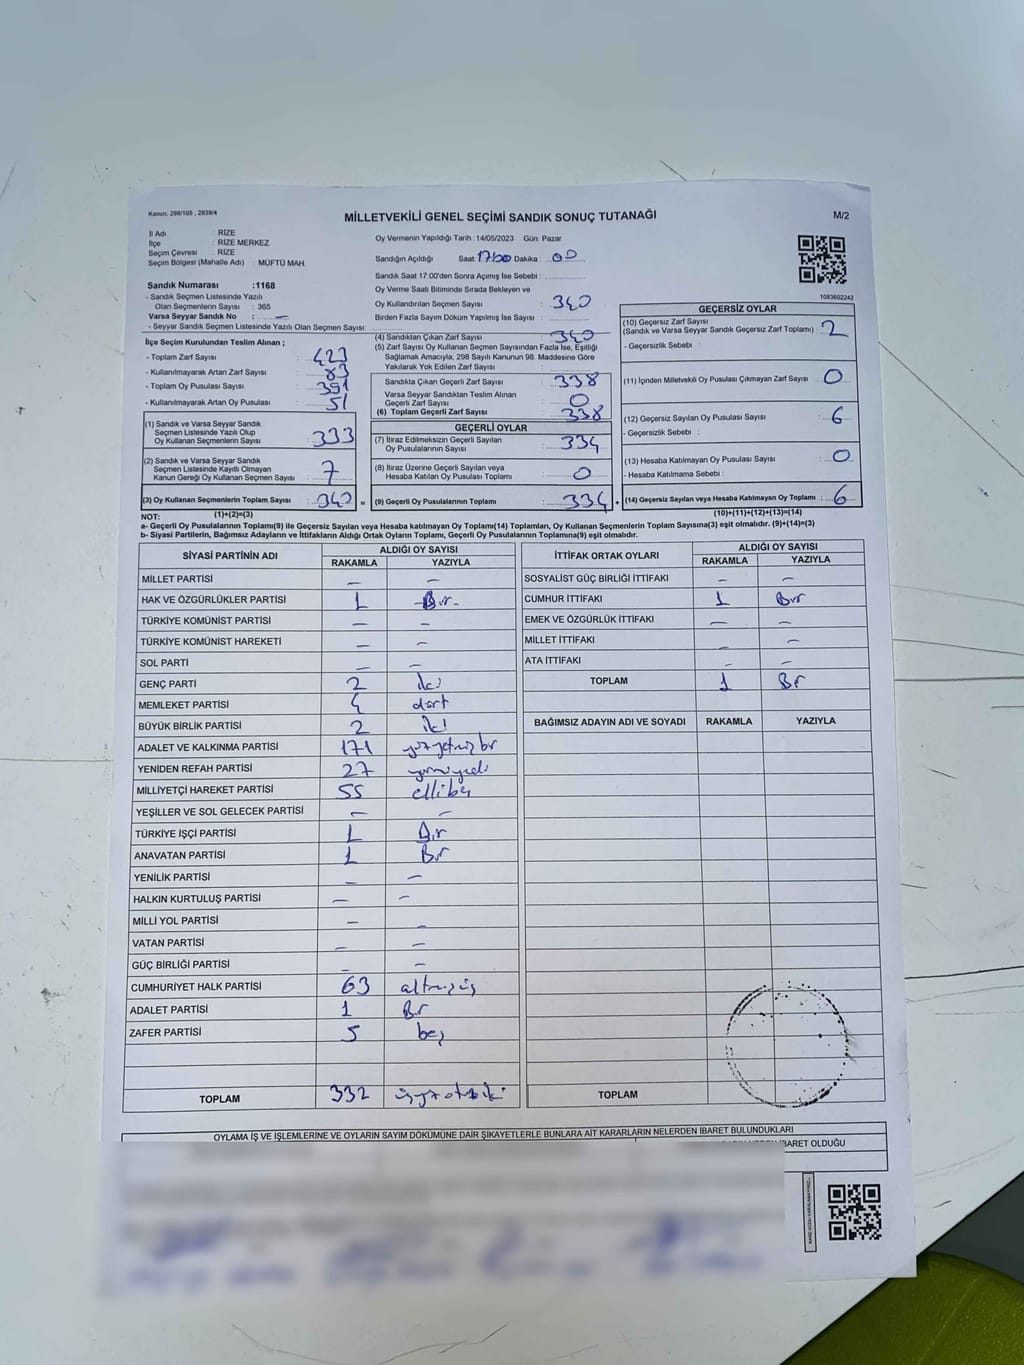 Kanun: 298/105 , 2839/4
MİLLETVEKİLİ GENEL SEÇİMİ SANDIK SONUÇ TUTANAĞI
M/2
İl Adı : RİZE
İlçe : RİZE MERKEZ
Seçim Çevresi : RİZE
Seçim Bölgesi (Mahalle Adı) : MÜFTÜ MAH.
Sandık Numarası :1168
- Sandık Seçmen Listesinde Yazılı
Olan Seçmenlerin Sayısı : 365
Varsa Seyyar Sandık No : —
- Seyyar Sandık Seçmen Listesinde Yazılı Olan Seçmen Sayısı:
İlçe Seçim Kurulundan Teslim Alınan ;
- Toplam Zarf Sayısı : 423
- Kullanılmayarak Artan Zarf Sayısı : 83
- Toplam Oy Pusulası Sayısı : 391
- Kullanılmayarak Artan Oy Pusulası : 51
(1) Sandık ve Varsa Seyyar Sandık
Seçmen Listesinde Yazılı Olup
Oy Kullanan Seçmenlerin Sayısı : 333
(2) Sandık ve Varsa Seyyar Sandık
Seçmen Listesinde Kayıtlı Olmayan
Kanun Gereği Oy Kullanan Seçmen Sayısı : 7
(3) Oy Kullanan Seçmenlerin Toplam Sayısı : 340 =
(1)+(2)=(3)
Oy Vermenin Yapıldığı Tarih : 14/05/2023 Gün: Pazar
Sandığın Açıldığı Saat: 17:00 Dakika : 00
Sandık Saat 17:00'den Sonra Açılmış İse Sebebi :
Oy Verme Saati Bitiminde Sırada Bekleyen ve
Oy Kullandırılan Seçmen Sayısı : 340
Birden Fazla Sayım Döküm Yapılmış İse Sayısı :
(4) Sandıktan Çıkan Zarf Sayısı : 340
(5) Zarf Sayısı Oy Kullanan Seçmen Sayısından Fazla İse, Eşitliği
Sağlamak Amacıyla, 298 Sayılı Kanunun 98. Maddesine Göre
Yakılarak Yok Edilen Zarf Sayısı :
Sandıkta Çıkan Geçerli Zarf Sayısı : 338
Varsa Seyyar Sandıktan Teslim Alınan
Geçerli Zarf Sayısı : 0
(6) Toplam Geçerli Zarf Sayısı : 338
GEÇERLİ OYLAR
(7) İtiraz Edilmeksizin Geçerli Sayılan
Oy Pusulalarının Sayısı : 334
(8) İtiraz Üzerine Geçerli Sayılan veya
Hesaba Katılan Oy Pusulası Toplamı : 0
(9) Geçerli Oy Pusulalarının Toplamı : 334 +
1083602242
GEÇERSİZ OYLAR
(10) Geçersiz Zarf Sayısı
(Sandık ve Varsa Seyyar Sandık Geçersiz Zarf Toplamı) : 2
- Geçersizlik Sebebi :
(11) İçinden Milletvekili Oy Pusulası Çıkmayan Zarf Sayısı : 0
(12) Geçersiz Sayılan Oy Pusulası Sayısı : 6
- Geçersizlik Sebebi :
(13) Hesaba Katılmayan Oy Pusulası Sayısı : 0
- Hesaba Katılmama Sebebi :
(14) Geçersiz Sayılan veya Hesaba Katılmayan Oy Toplamı : 6
(10)+(11)+(12)+(13)=(14)
NOT:
a- Geçerli Oy Pusulalarının Toplamı(9) ile Geçersiz Sayılan veya Hesaba katılmayan Oy Toplamı(14) Toplamları, Oy Kullanan Seçmenlerin Toplam Sayısına(3) eşit olmalıdır. (9)+(14)=(3)
b- Siyasi Partilerin, Bağımsız Adayların ve İttifakların Aldığı Ortak Oyların Toplamı, Geçerli Oy Pusulalarının Toplamına(9) eşit olmalıdır.
SİYASİ PARTİNİN ADI ALDIĞI OY SAYISI
RAKAMLA YAZIYLA
MİLLET PARTİSİ — —
HAK VE ÖZGÜRLÜKLER PARTİSİ 1 - Bir -
TÜRKİYE KOMÜNİST PARTİSİ — —
TÜRKİYE KOMÜNİST HAREKETİ — —
SOL PARTİ — —
GENÇ PARTİ 2 iki
MEMLEKET PARTİSİ 4 dört
BÜYÜK BİRLİK PARTİSİ 2 iki
ADALET VE KALKINMA PARTİSİ 171 yüzyetmiş bir
YENİDEN REFAH PARTİSİ 27 yirmiyedi
MİLLİYETÇİ HAREKET PARTİSİ 55 ellibeş
YEŞİLLER VE SOL GELECEK PARTİSİ — —
TÜRKİYE İŞÇİ PARTİSİ 1 Bir
ANAVATAN PARTİSİ 1 Bir
YENİLİK PARTİSİ — —
HALKIN KURTULUŞ PARTİSİ — —
MİLLİ YOL PARTİSİ — —
VATAN PARTİSİ — —
GÜÇ BİRLİĞİ PARTİSİ — —
CUMHURİYET HALK PARTİSİ 63 altmışüç
ADALET PARTİSİ 1 Bir
ZAFER PARTİSİ 5 beş
TOPLAM 332 üçyüzotuziki
İTTİFAK ORTAK OYLARI ALDIĞI OY SAYISI
RAKAMLA YAZIYLA
SOSYALİST GÜÇ BİRLİĞİ İTTİFAKI — —
CUMHUR İTTİFAKI 1 Bir
EMEK VE ÖZGÜRLÜK İTTİFAKI — —
MİLLET İTTİFAKI — —
ATA İTTİFAKI — —
TOPLAM 1 Bir
BAĞIMSIZ ADAYIN ADI VE SOYADI RAKAMLA YAZIYLA
TOPLAM
OYLAMA İŞ VE İŞLEMLERİNE VE OYLARIN SAYIM DÖKÜMÜNE DAİR ŞİKAYETLERLE BUNLARA AİT KARARLARIN NELERDEN İBARET BULUNDUKLARI
İBARET OLDUĞU